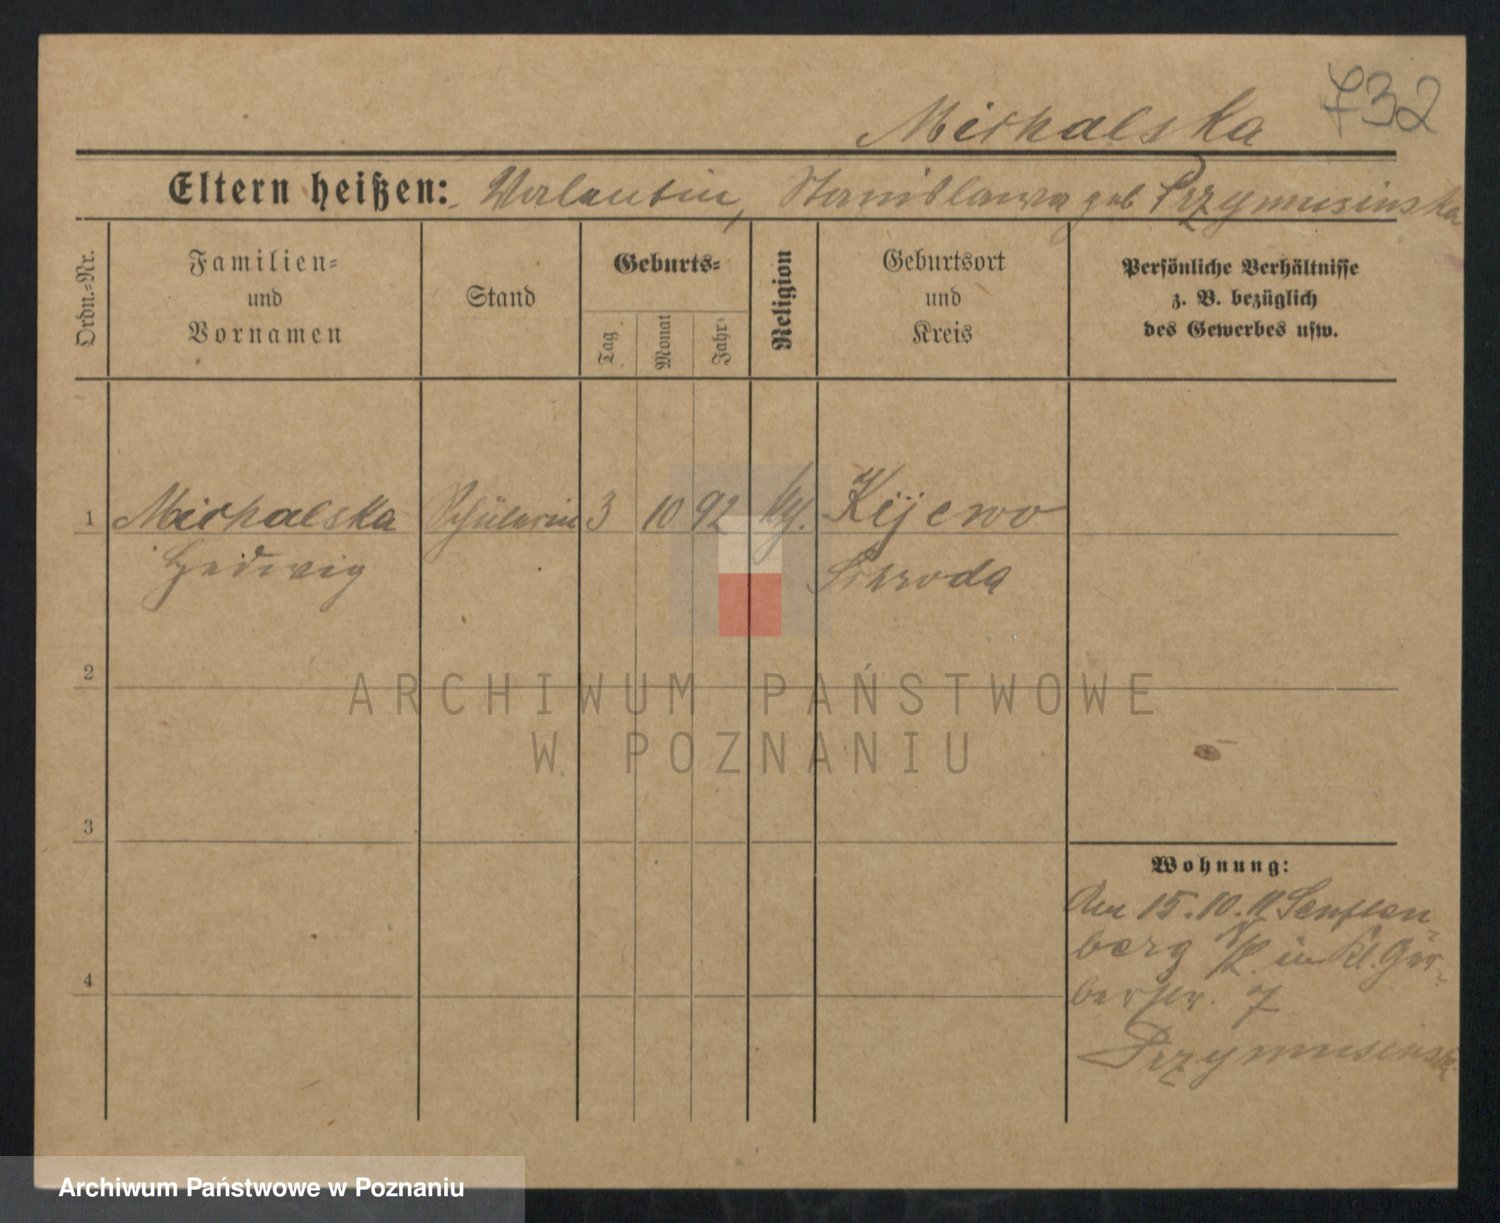 732
Michalska
Eltern heißen: Valentin, Stanislawa geb Przymusinska
Ordn.-Nr.
Familien- und Vornamen
Stand
Geburts-
Tag
Monat
Jahr
Religion
Geburtsort und Kreis
Persönliche Verhältnisse
z. B. bezüglich
des Gewerbes usw.
1 Michalska Schülerin 3 10 92 kath. Kijewo
Hedwig Schroda
2
ARCHIWUM PAŃSTWOWE
W POZNANIU
3
Wohnung:
Am 15.10.11 Senften-
berg N/L. in Kl. Ger-
4
berstr. 7
Przymusinski
Archiwum Państwowe w Poznaniu